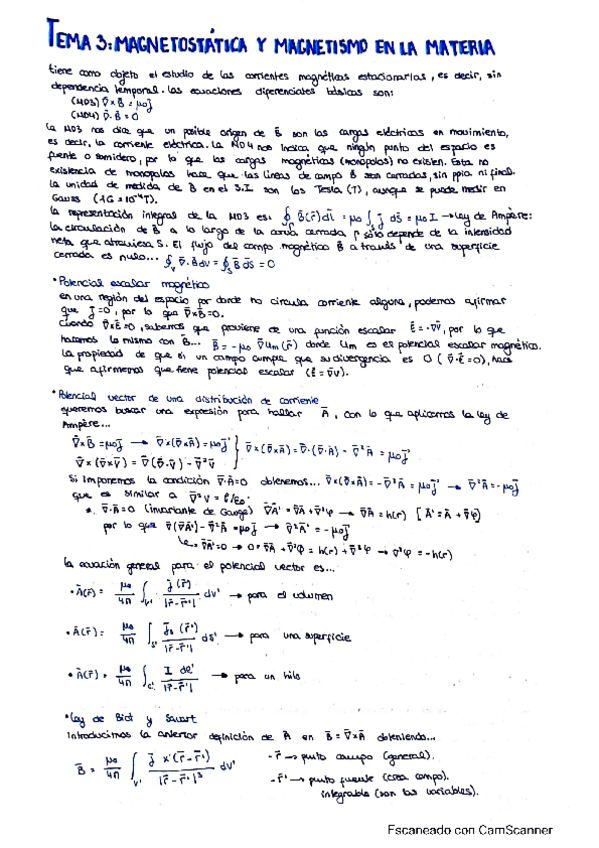 TEMA 3: MAGNETOSTÁTICA Y MAGNETISMO EN LA MATERIA
tiene como objeto el estudio de las corrientes magnéticas estacionarias, es decir, sin
dependencia temporal. Las ecuaciones diferenciales básicas son:
(MD3) ∇̄×B̄ = μ₀J̄
(MD4) ∇̄·B̄ = 0
La MD3 nos dice que un posible origen de B̄ son las cargas eléctricas en movimiento,
es decir, la corriente eléctrica. La MD4 nos indica que ningún punto del espacio es
fuente o sumidero, por lo que las cargas magnéticas (monopolos) no existen. Esta no
existencia de monopolos hace que las líneas de campo B̄ sean cerradas, sin ppio ni final.
La unidad de medida de B en el S.I. son los Tesla (T), aunque se puede medir en
Gauss (1G = 10⁻⁴T).
La representación integral de la MD3 es: ∮ B̄(r̄) dl̄ = μ₀ ∫ J̄ dS̄ = μ₀I → Ley de Ampère:
la circulación de B̄ a lo largo de la curva cerrada Γ sólo depende de la intensidad
neta que atraviesa S. El flujo del campo magnético B̄ a través de una superficie
cerrada es nulo... ∮ᵥ ∇̄·B̄ dv = ∮ₛ B̄ dS̄ = 0
• Potencial escalar magnético
en una región del espacio por donde no circula corriente alguna, podemos afirmar
que J̄ = 0, por lo que ∇̄×B̄ = 0.
Cuando ∇̄×Ē = 0, sabemos que proviene de una función escalar Ē = -∇̄V, por lo que
hacemos lo mismo con B̄... B̄ = -μ₀ ∇̄Um(r̄) donde Um es el potencial escalar magnético.
La propiedad de que si un campo cumple que su divergencia es 0 (∇̄·Ē = 0), hace
que afirmemos que tiene potencial escalar (Ē = ∇̄V).
• Potencial vector de una distribución de corriente
queremos buscar una expresión para hallar Ā, con lo que aplicamos la ley de
Ampère...
∇̄×B̄ = μ₀J̄ → ∇̄×(∇̄×Ā) = μ₀J̄ } ∇̄×(∇̄×Ā) = ∇̄·(∇̄·Ā) - ∇̄²Ā = μ₀J̄
∇̄×(∇̄×V̄) = ∇̄(∇̄·V̄) - ∇̄²V̄
Si imponemos la condición ∇̄·Ā = 0 obtenemos... ∇̄×(∇̄×Ā) = -∇̄²Ā = μ₀J̄ → ∇̄²Ā = -μ₀J̄
que es similar a ∇̄²V = ρ/ε₀
*. ∇̄·Ā = 0 (invariante de Gauge) ∇̄Ā' = ∇̄Ā + ∇̄²φ → ∇̄Ā = h(r) [Ā' = Ā + ∇̄φ]
por lo que ∇̄(∇̄Ā') - ∇̄²Ā = μ₀J̄ → ∇̄²Ā' = -μ₀J̄
↳ ∇̄Ā' = 0 → 0 = ∇̄Ā + ∇̄²φ = h(r) + ∇̄²φ → ∇²φ = -h(r)
la ecuación general para el potencial vector es...
• Ā(r̄) = μ₀/4π ∫ᵥ' J̄(r̄')/|r̄-r̄'| dv' → para el volumen
• Ā(r̄) = μ₀/4π ∫ₛ' J̄s(r̄')/|r̄-r̄'| dS' → para una superficie
• Ā(r̄) = μ₀/4π ∫c' I dl̄'/|r̄-r̄'| → para un hilo
• Ley de Biot y Savart
Introducimos la anterior definición de Ā en B̄ = ∇̄×Ā obteniendo...
B̄ = μ₀/4π ∫ᵥ' J̄ × (r̄-r̄')/|r̄-r̄'|³ dv'
- r̄ → punto campo (general).
- r̄' → punto fuente (crea campo).
integrable (son las variables).
Escaneado con CamScanner